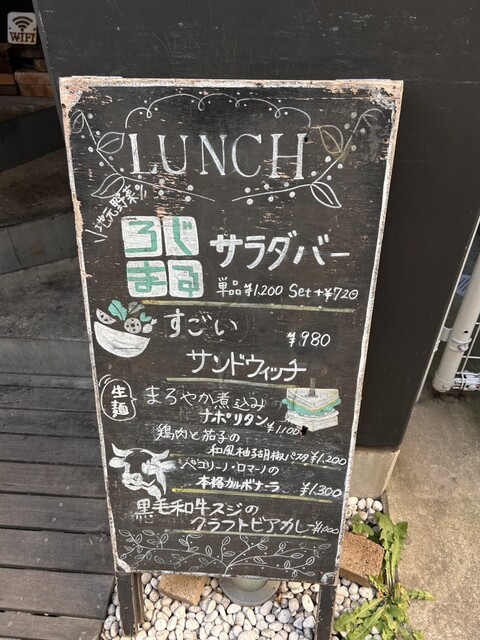 WiFi
LUNCH
地元野菜
ろじまる
サラダバー
単品¥1.200 Set+¥720
すごい
¥980
サンドウィッチ
生麺
まろやか煮込みの
ナポリタン
¥1.100
鶏肉と茄子の
和風柚子胡椒パスタ¥1.200
ペコリーノ・ロマーノの
本格カルボナーラ ¥1.300
黒毛和牛スジの
クラフトビアカレー